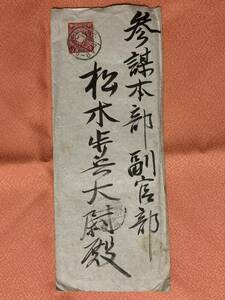 参謀本部副官部
松木歩兵大尉殿